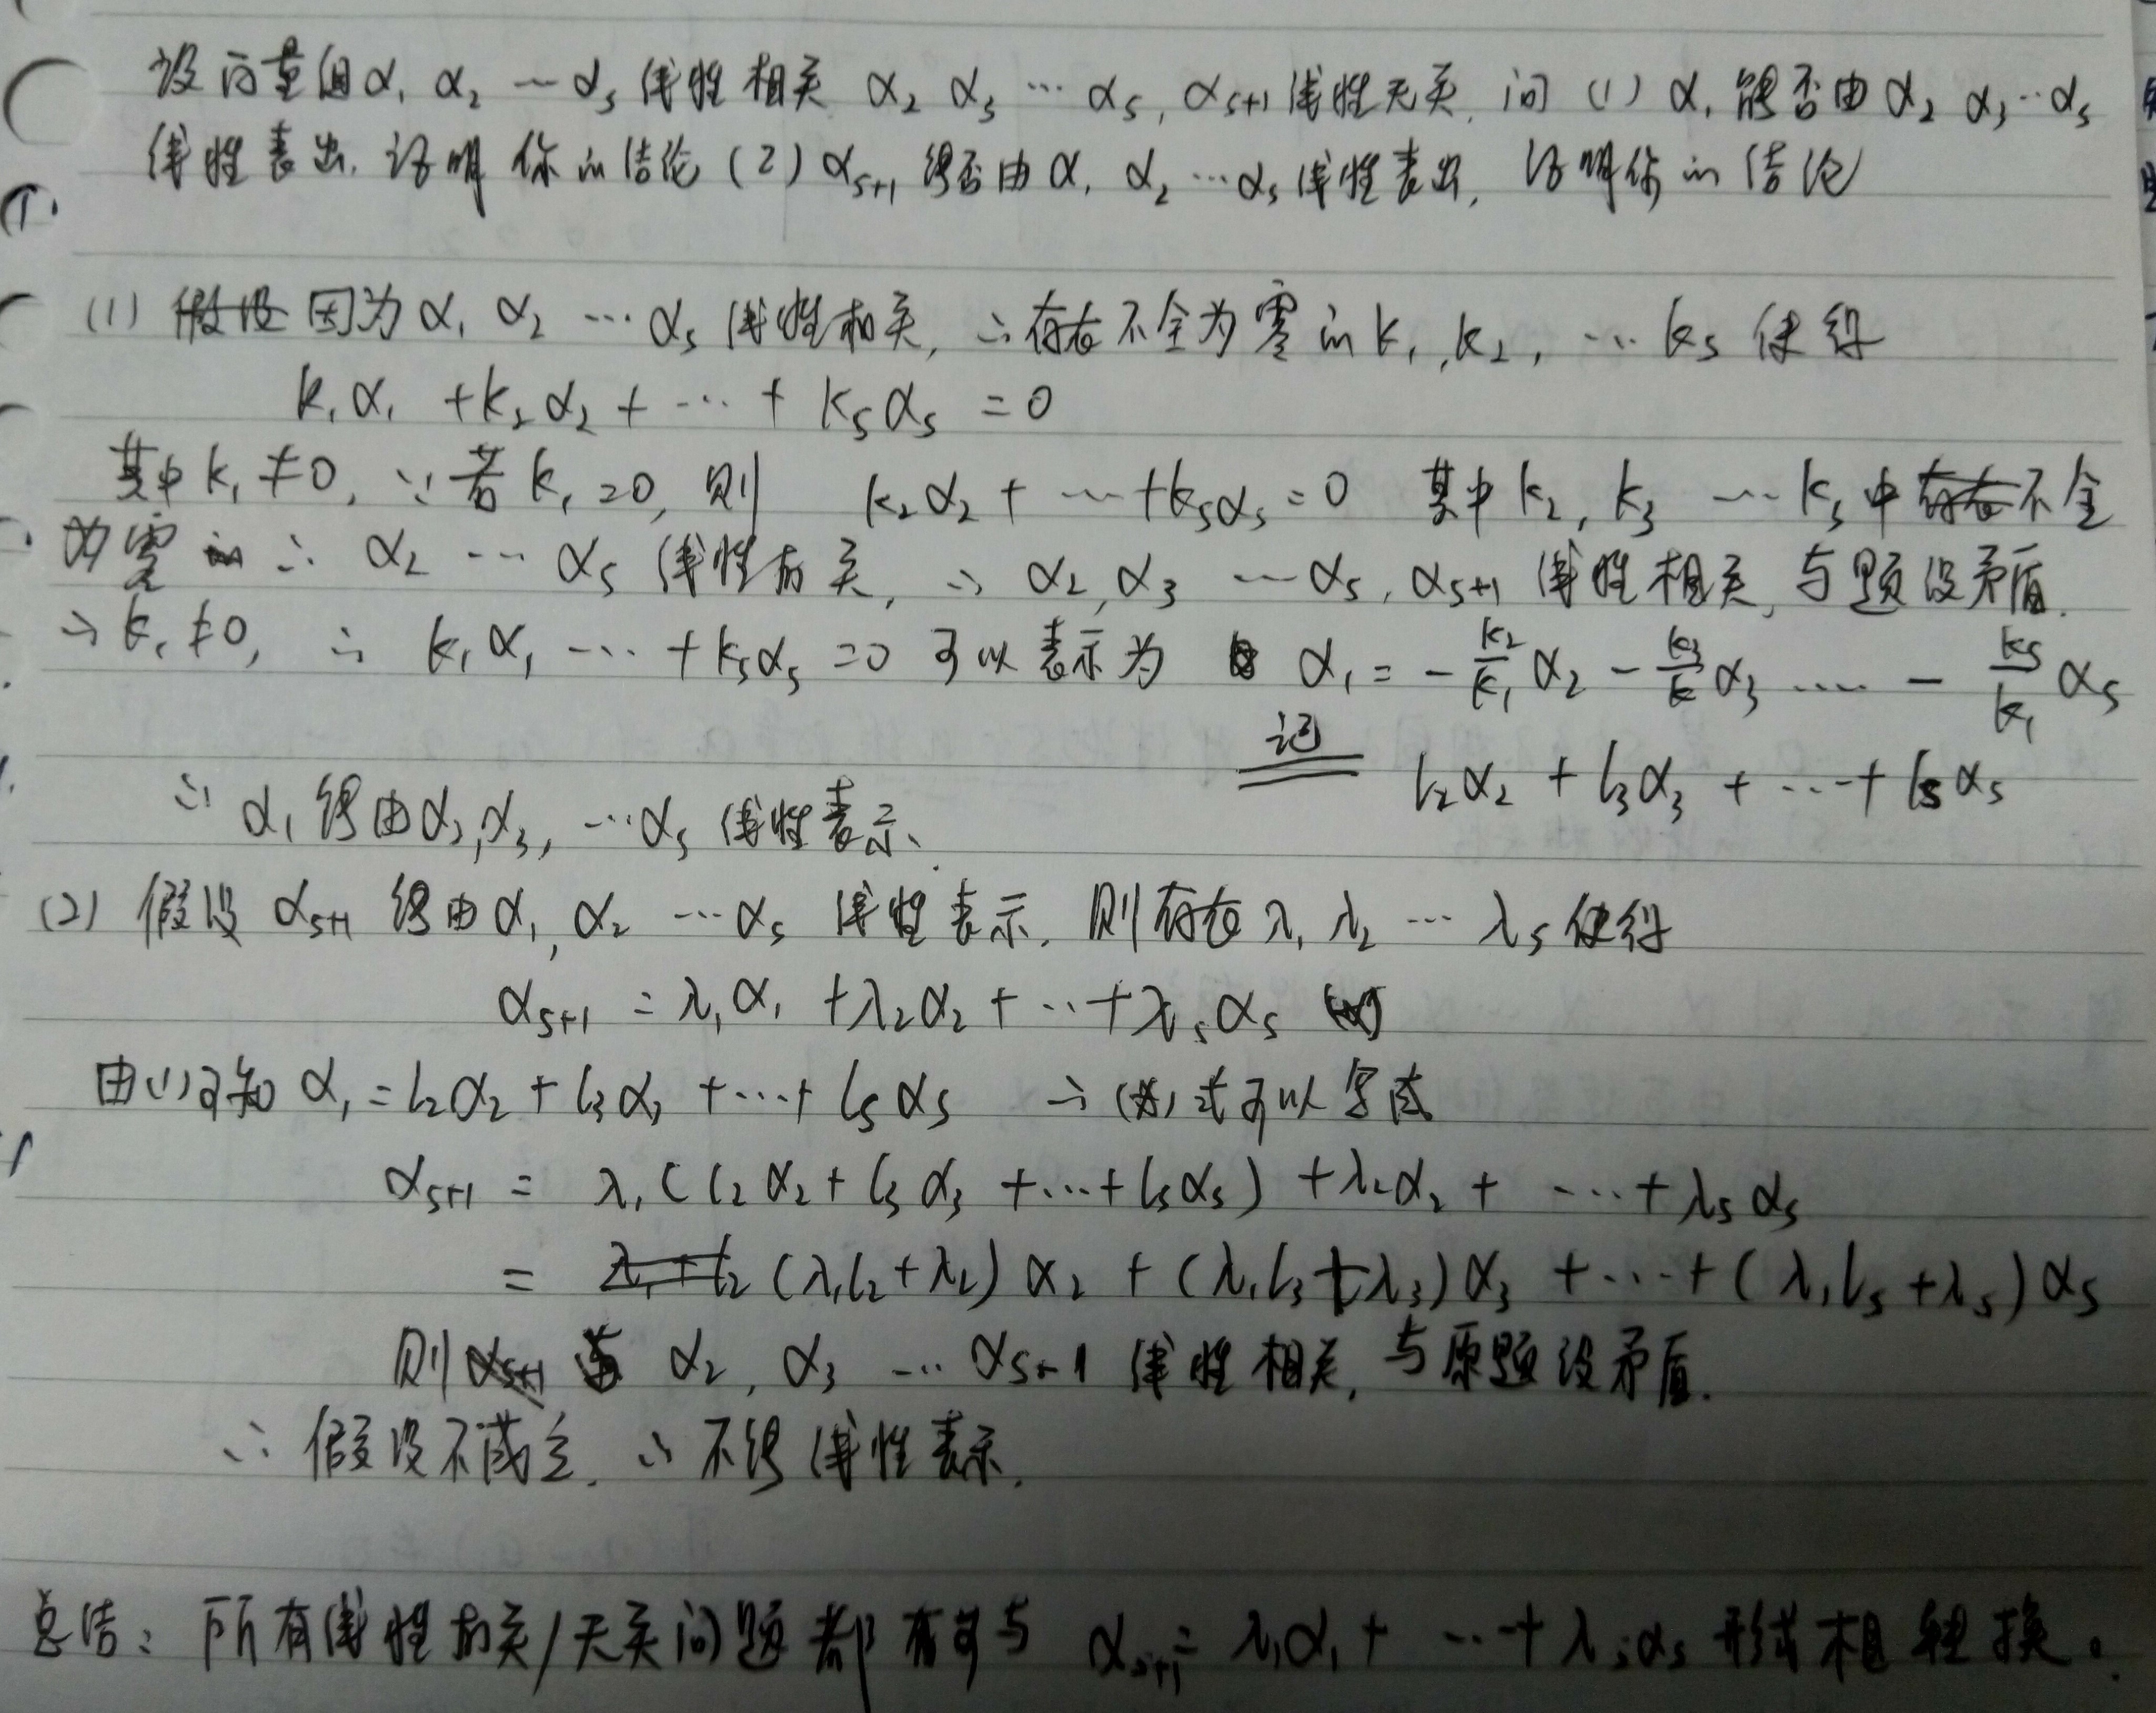 设向量组α₁ α₂ … αₛ 线性相关 α₂ α₃ … αₛ, αₛ₊₁ 线性无关, 问 (1) α₁ 能否由 α₂ α₃ … αₛ
线性表出, 证明你的结论 (2) αₛ₊₁ 能否由 α₁ α₂ … αₛ 线性表出, 证明你的结论
(1) 因为 α₁ α₂ … αₛ 线性相关, ∴ 存在不全为零的 k₁, k₂, … kₛ 使得
k₁α₁ + k₂α₂ + … + kₛαₛ = 0
其中 k₁ ≠ 0, ∵ 若 k₁ = 0, 则 k₂α₂ + … + kₛαₛ = 0 其中 k₂, k₃ … kₛ 中不全
为零 ∴ α₂ … αₛ 线性相关, ∴ α₂, α₃ … αₛ, αₛ₊₁ 线性相关, 与题设矛盾.
∴ k₁ ≠ 0, ∴ k₁α₁ … + kₛαₛ = 0 可以表示为 α₁ = -k₂/k₁ α₂ - k₃/k α₃ …… - kₛ/k₁ αₛ
记 l₂α₂ + l₃α₃ + … + lₛαₛ
∴ α₁ 能由 α₂, α₃, … αₛ 线性表示.
(2) 假设 αₛ₊₁ 能由 α₁, α₂ … αₛ 线性表示, 则存在 λ₁ λ₂ … λₛ 使得
αₛ₊₁ = λ₁α₁ + λ₂α₂ + … + λₛαₛ (*)
由(1)可知 α₁ = l₂α₂ + l₃α₃ + … + lₛαₛ ∴ (*)式可以写成
αₛ₊₁ = λ₁(l₂α₂ + l₃α₃ + … + lₛαₛ) + λ₂α₂ + … + λₛαₛ
= (λ₁l₂ + λ₂)α₂ + (λ₁l₃ + λ₃)α₃ + … + (λ₁lₛ + λₛ)αₛ
则 α₂, α₃ … αₛ₊₁ 线性相关, 与原题设矛盾.
∴ 假设不成立, ∴ 不能线性表示.
总结: 所有线性相关/无关问题都可与 αₛ₊₁ = λ₁α₁ + … + λₛαₛ 形式相转换.